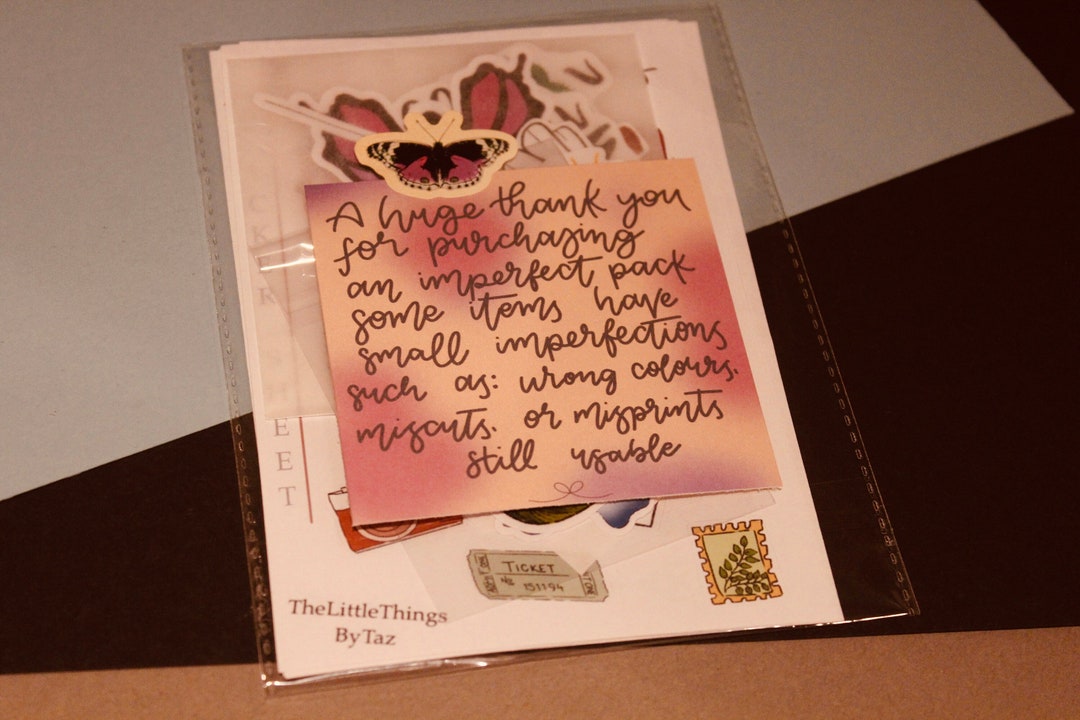 A huge thank you
for purchasing
an imperfect pack
some items have
small imperfections
such as: wrong colours,
miscuts, or misprints
still usable
E
E
T
TICKET
No 151194
TheLittleThings
ByTaz